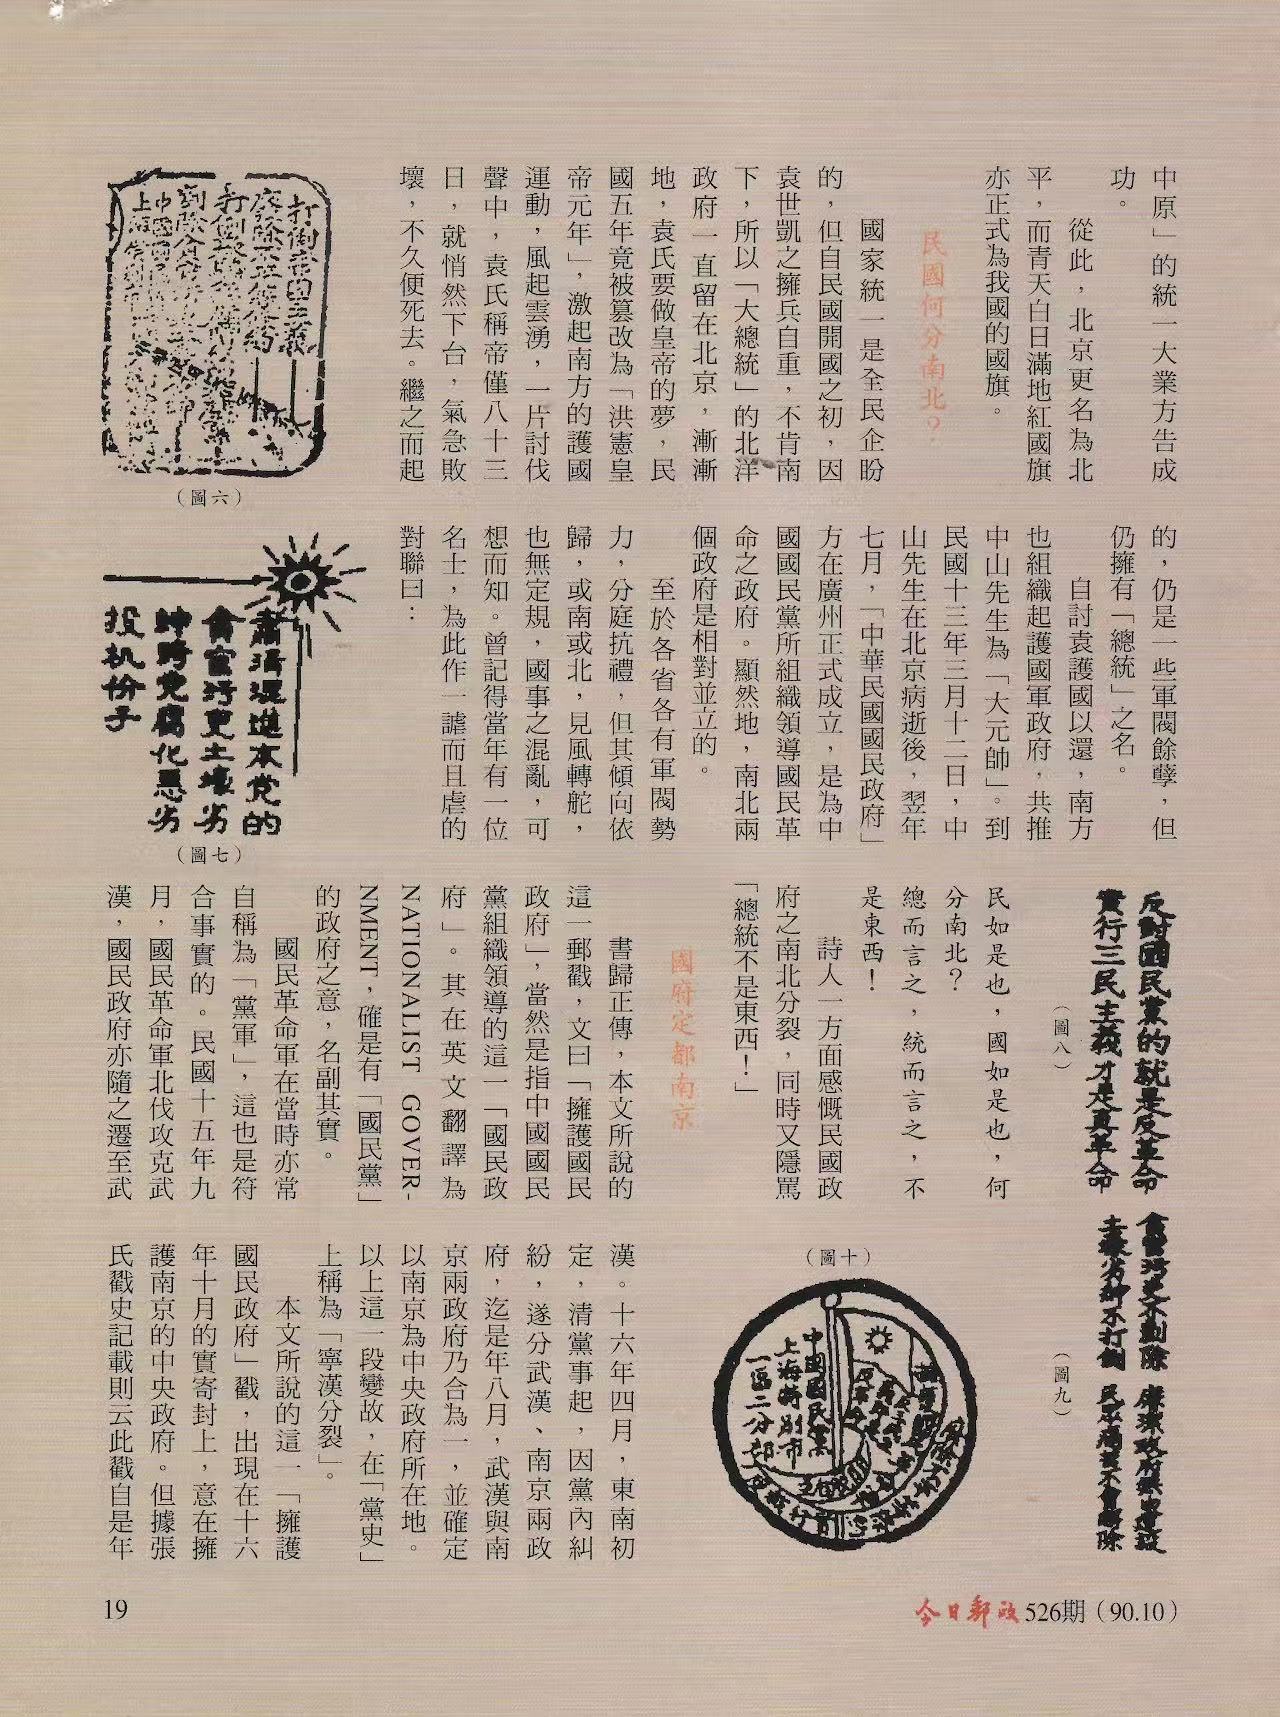 中原」的統一大業方告成
功。
從此，北京更名為北
平，而青天白日滿地紅國旗
亦正式為我國的國旗。
民國何分南北？
國家統一是全民企盼
的，但自民國開國之初，因
袁世凱之擁兵自重，不肯南
下，所以「大總統」的北洋
政府一直留在北京，漸漸
地，袁氏要做皇帝的夢，民
國五年竟被篡改為「洪憲皇
帝元年」，激起南方的護國
運動，風起雲湧，一片討伐
聲中，袁氏稱帝僅八十三
日，就悄然下台，氣急敗
壞，不久便死去。繼之而起
打倒帝國主義
廢除不平等條約
（圖六）
的，仍是一些軍閥餘孽，但
仍擁有「總統」之名。
自討袁護國以還，南方
也組織起護國軍政府，共推
中山先生為「大元帥」。到
民國十三年三月十二日，中
山先生在北京病逝後，翌年
七月，「中華民國國民政府」
方在廣州正式成立，是為中
國國民黨所組織領導國民革
命之政府。顯然地，南北兩
個政府是相對並立的。
至於各省各有軍閥勢
力，分庭抗禮，但其傾向依
歸，或南或北，見風轉舵，
也無定規，國事之混亂，可
想而知。曾記得當年有一位
名士，為此作一謔而且虐的
對聯曰：
肅清混進本党的
貪官污吏土壕劣
紳跨党腐化惡劣
投机份子
（圖七）
反對國民黨的就是反革命
實行三民主義才是真革命
（圖八）
貪官污吏不剷除
土壕劣紳不打倒
（圖九）
民如是也，國如是也，何
分南北？
總而言之，統而言之，不
是東西！
詩人一方面感慨民國政
府之南北分裂，同時又隱罵
「總統不是東西！」
國府定都南京
書歸正傳，本文所說的
這一郵戳，文曰「擁護國民
政府」，當然是指中國國民
黨組織領導的這一「國民政
府」。其在英文翻譯為
NATIONALIST GOVER-
NMENT，確是有「國民黨」
的政府之意，名副其實。
國民革命軍在當時亦常
自稱為「黨軍」，這也是符
合事實的。民國十五年九
月，國民革命軍北伐攻克武
漢，國民政府亦隨之遷至武
（圖十）
中國國民黨
上海特別市
一區二分部
漢。十六年四月，東南初
定，清黨事起，因黨內糾
紛，遂分武漢、南京兩政
府，迄是年八月，武漢與南
京兩政府乃合為一，並確定
以南京為中央政府所在地。
以上這一段變故，在「黨史」
上稱為「寧漢分裂」。
本文所說的這一「擁護
國民政府」戳，出現在十六
年十月的實寄封上，意在擁
護南京的中央政府。但據張
氏戳史記載則云此戳自是年
19
今日郵政 526期（90.10）